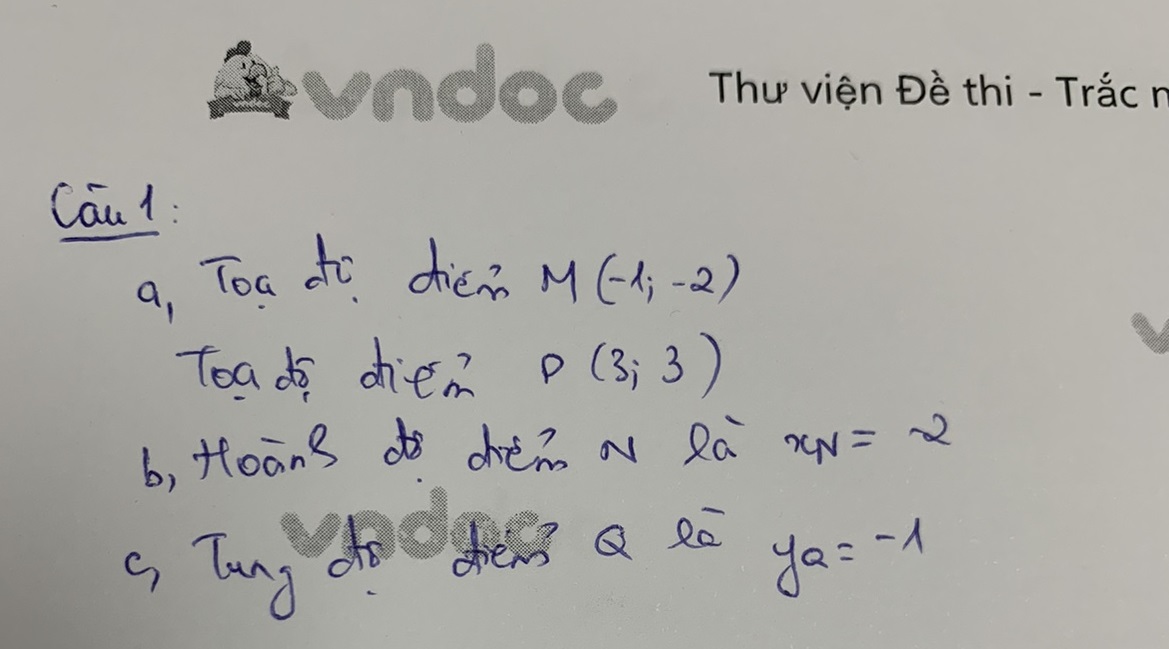 vndoc Thư viện Đề thi - Trắc n
Câu 1:
a, Toạ độ điểm M (-1; -2)
Toạ độ điểm P (3; 3)
b, Hoành độ điểm N là xN = -2
vndoc
c, Tung độ điểm Q là yQ = -1